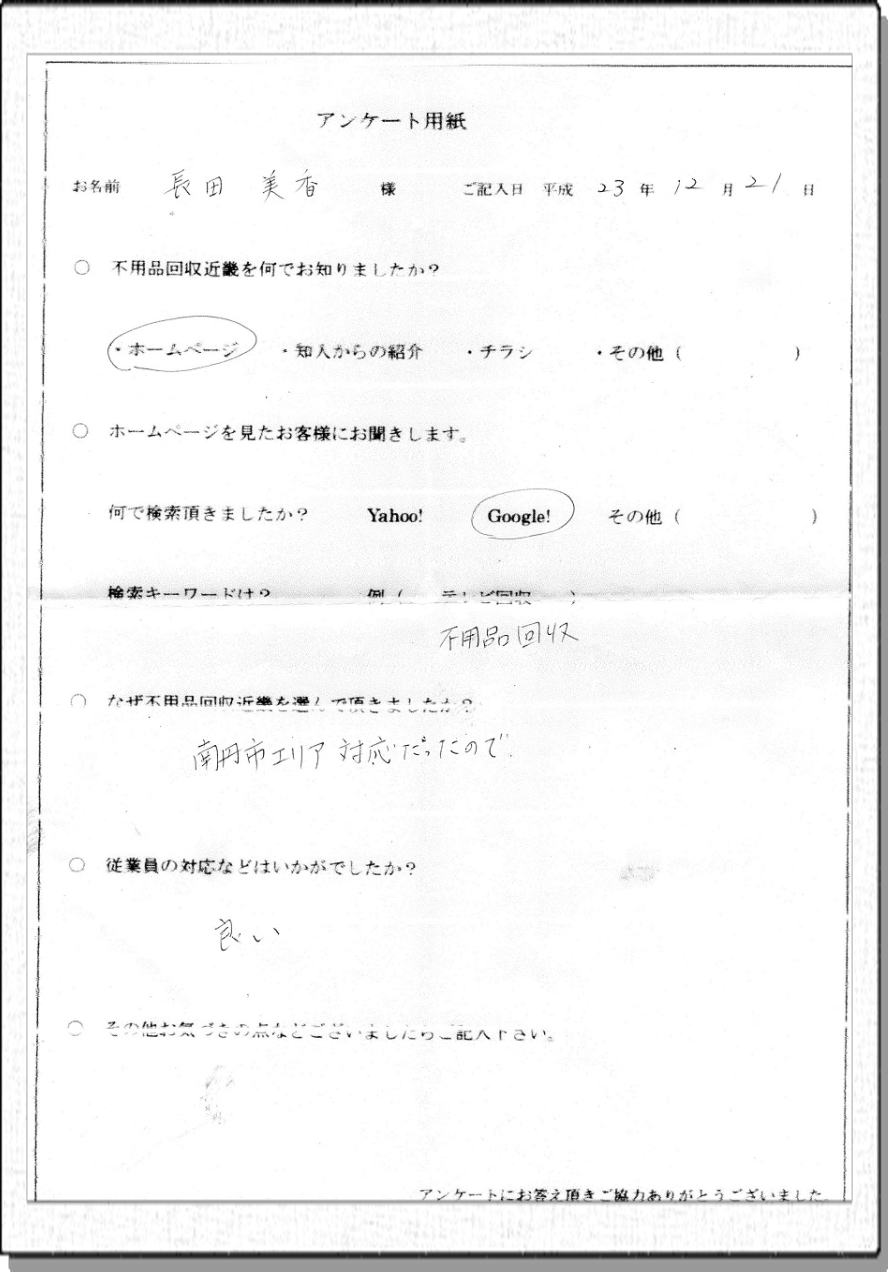 アンケート用紙
お名前 長田 美香 様 ご記入日 平成 23 年 12 月 21 日
○ 不用品回収近畿を何でお知りましたか?
・ホームページ ・知人からの紹介 ・チラシ ・その他 ( )
○ ホームページを見たお客様にお聞きします。
何で検索頂きましたか? Yahoo! Google! その他 ( )
検索キーワードは? 例 ( テレビ回収 )
不用品回収
○ なぜ不用品回収近畿を選んで頂きましたか?
南丹市エリア対応だったので
○ 従業員の対応などはいかがでしたか?
良い
○ その他お気づきの点などございましたらご記入下さい。
アンケートにお答え頂きご協力ありがとうございました。